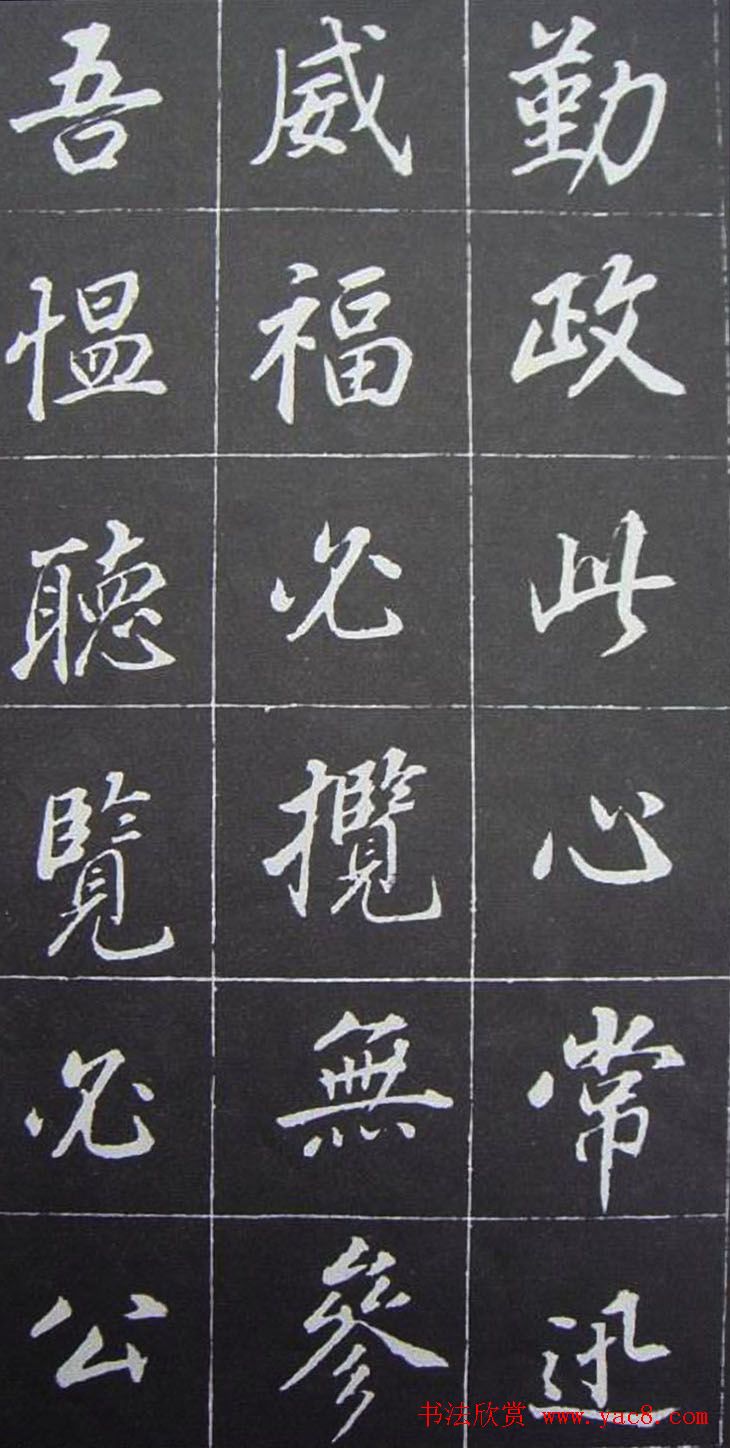 勤政此心常迅
威福必攬無參
吾愠聽覽必公
书法欣赏 www.yac8.com